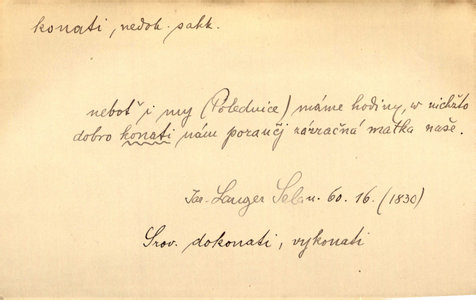 konati, nedok. sakk.
neboť i my (Polednice) máme hodiny, w nichžto
dobro konati nám poraučj zázračná matka naše.
Jar. Langer Sel. u. 60. 16. (1830)
Srov. dokonati, vykonati